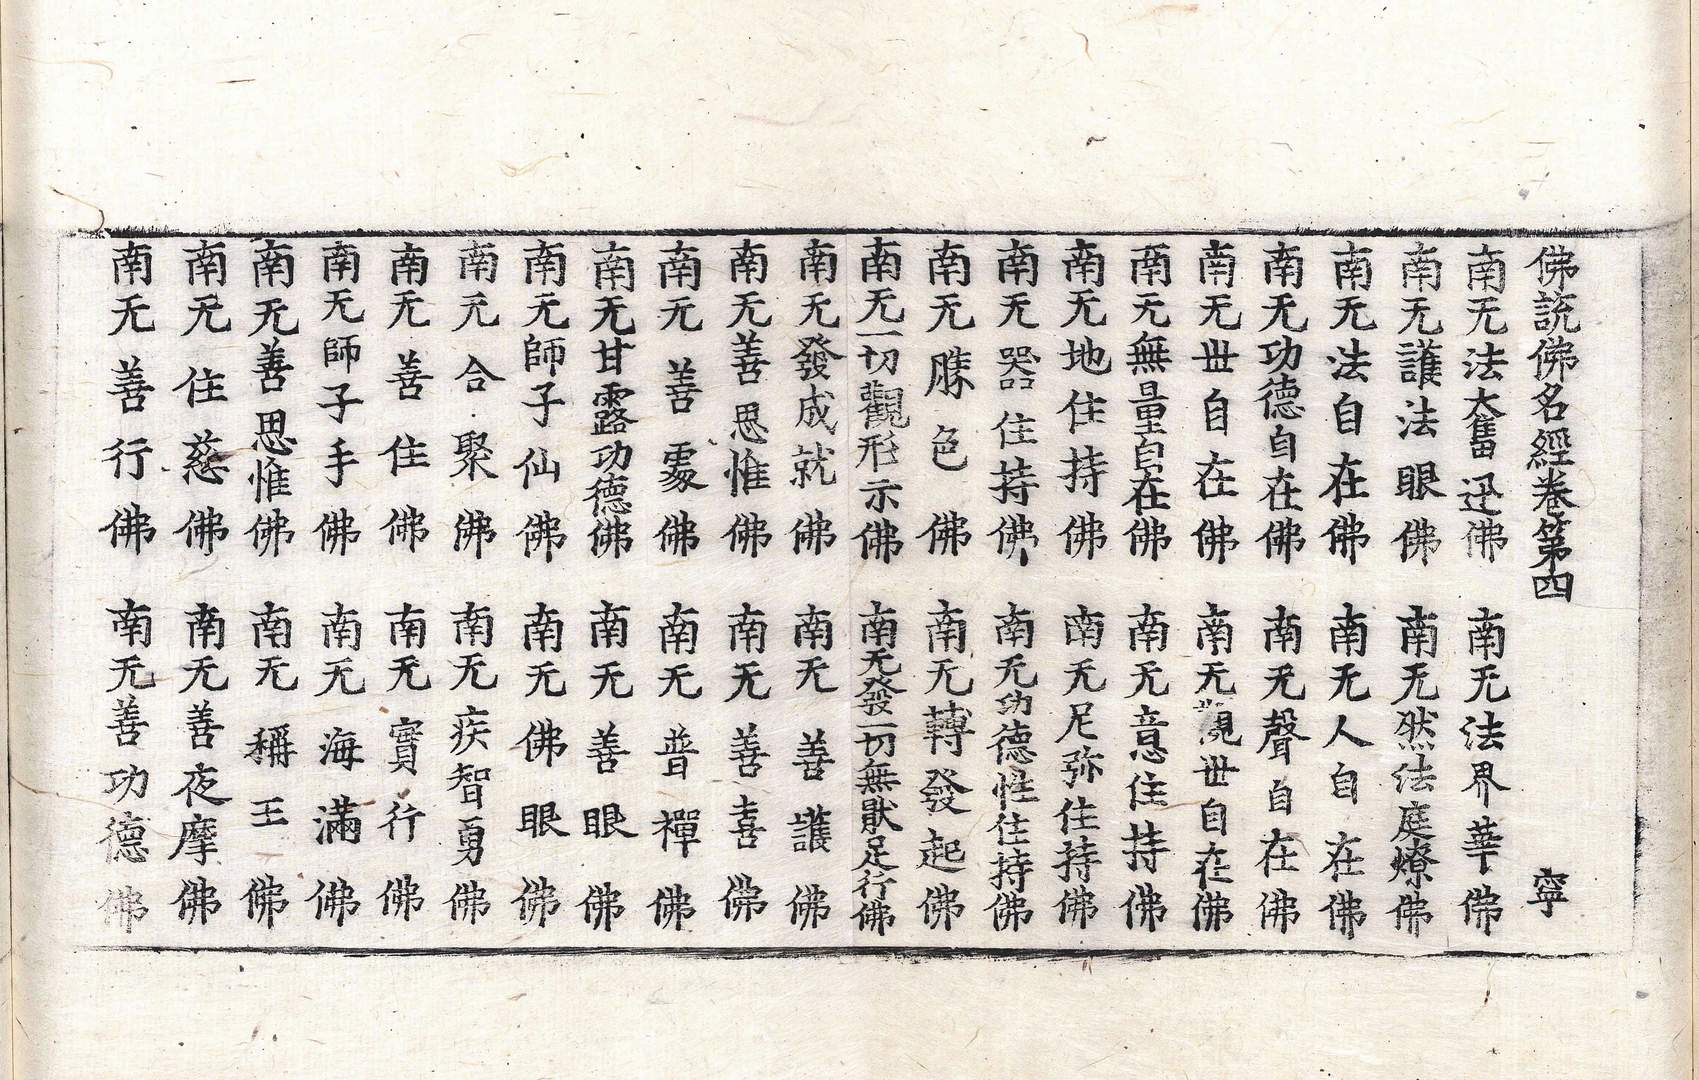 佛説佛名經卷第四 寧
南无法大奮迅佛 南无法界華佛
南无護法眼佛 南无然法庭燎佛
南无法自在佛 南无人自在佛
南无功德自在佛 南无聲自在佛
南无世自在佛 南无觀世自在佛
南无無量自在佛 南无意住持佛
南无地住持佛 南无尼弥住持佛
南无器住持佛 南无功德性住持佛
南无勝色佛 南无轉發起佛
南无一切觀形示佛 南无發一切無猒足行佛
南无發成就佛 南无善護佛
南无善思惟佛 南无善喜佛
南无善䖏佛 南无普禪佛
南无甘露功德佛 南无善眼佛
南无師子仙佛 南无佛眼佛
南无合聚佛 南无疾智勇佛
南无善住佛 南无寶行佛
南无師子手佛 南无海滿佛
南无善思惟佛 南无稱王佛
南无住慈佛 南无善夜摩佛
南无善行佛 南无善功德佛